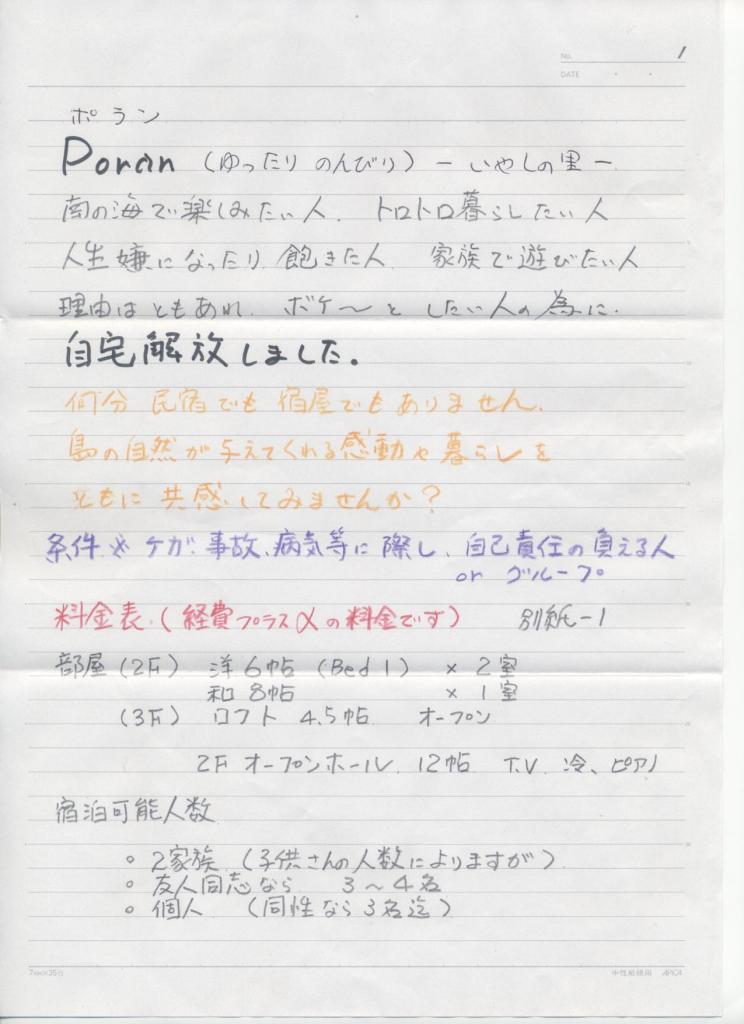 No. 1
DATE ・ ・
ポラン
Poran (ゆったり のんびり) ー いやしの里 ー
南の海で楽しみたい人、 トロトロ暮らしたい人
人生嫌になったり、飽きた人、 家族で遊びたい人
理由はともあれ、ボケ〜と したい人の為に、
自宅解放しました。
何分 民宿でも 宿屋でもありません、
島の自然が与えてくれる感動や暮らしを
ともに 共感してみませんか?
条件 ※ ケガ、事故、病気等に際し、自己責任の負える人
or グループ
料金表、(経費プラスαの料金です) 別紙-1
部屋 (2F) 洋6帖 (Bed 1) × 2室
和8帖 × 1室
(3F) ロフト 4.5帖 オープン
2F オープンホール、12帖 T.V 冷、ピアノ
宿泊可能人数
○ 2家族 (子供さんの人数によりますが)
○ 友人同志なら 3〜4名
○ 個人 (同性なら3名迄)
7mm×35行 中性紙使用 APICA